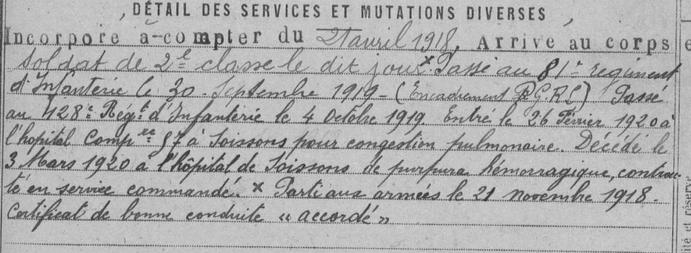 DÉTAIL DES SERVICES ET MUTATIONS DIVERSES
Incorporé à compter du 21 avril 1918, Arrivé au corps e
soldat de 2e classe le dit jour x Passé au 81e régiment
d'Infanterie le 30 Septembre 1919 - (Encadrement P.G.R.C) Passé
au 128e Régt d'Infanterie le 4 Octobre 1919. Entré le 26 Février 1920 à
l'hopital Compre 87 à Soissons pour congestion pulmonaire. Décédé le
3 Mars 1920 à l'hôpital de Soissons de purpura hémorragique, contrac
té en service commandé. x Parti aux armées le 21 novembre 1918.
Certificat de bonne conduite « accordé »
ité et réserve